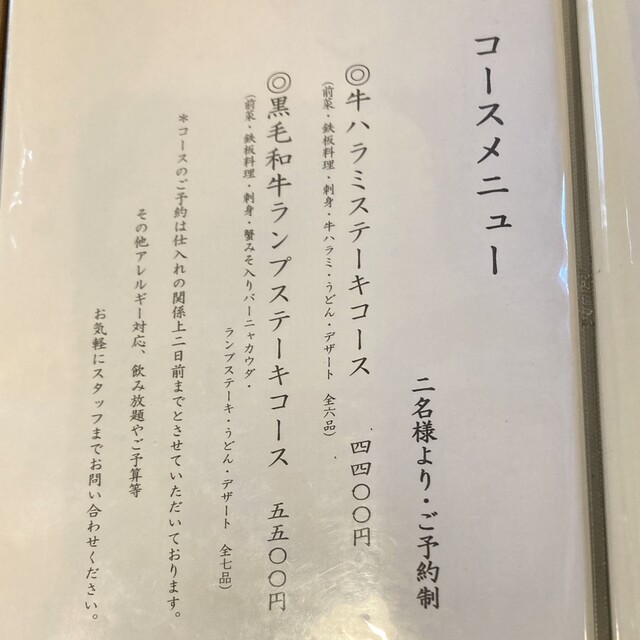 コースメニュー
二名様より・ご予約制
◎牛ハラミステーキコース 四四〇〇円
(前菜・鉄板料理・刺身・牛ハラミ・うどん・デザート 全六品)
◎黒毛和牛ランプステーキコース 五五〇〇円
(前菜・鉄板料理・刺身・蟹みそ入りバーニャカウダ・
ランプステーキ・うどん・デザート 全七品)
*コースのご予約は仕入れの関係上二日前までとさせていただいております。
その他アレルギー対応、飲み放題やご予算等
お気軽にスタッフまでお問い合わせください。